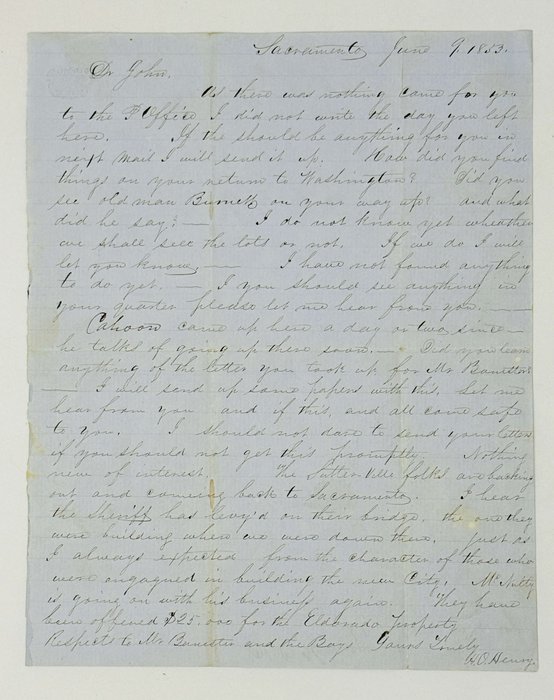 Sacramento June 9, 1853.
Dr John.
As there was nothing came for you
to the P Office, I did not write the day you left
here. If the should be anything for you in
next mail I will send it up. How did you find
things on your return to Washington? Did you
see old man Burnett on your way up? and what
did he say? — I do not know yet whether
we shall sell the lots or not. If we do I will
let you know. — I have not found anything
to do yet. — I you should see anything in
your quarter please let me hear from you. —
Cahoon came up here a day or two since —
he talks of going up there soon. — Did you learn
anything of the letter you took up for Mr Banister?
— I will send up some papers with this. Let me
hear from you and if this, and all come safe
to you. I should not dare to send your letters
if you should not get this promptly. Nothing
new of interest. The Sutter Ville folks are backing
out and comeing back to Sacramento. I hear
the Sheriff has levy'd on their bridge, the one they
were building where we were down there. just as
I always expected from the character of those who
were engagned in building the new City. McNulty
is going on with his business again. They have
been offered $25.000 for the Eldorado Property
Respects to Mr Banister and the Boys Yours Truely
Henry